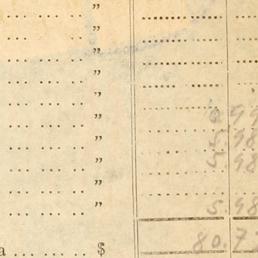 ... ... .... "
... ... .... "
... ... .... "
... ... .... "
... ... .... "
... ... .... " 99
... ... .... " 5.98
... ... .... " 5.98
... ... .... "
... ... .... " 5.98
a ... ... .. $ 80.7